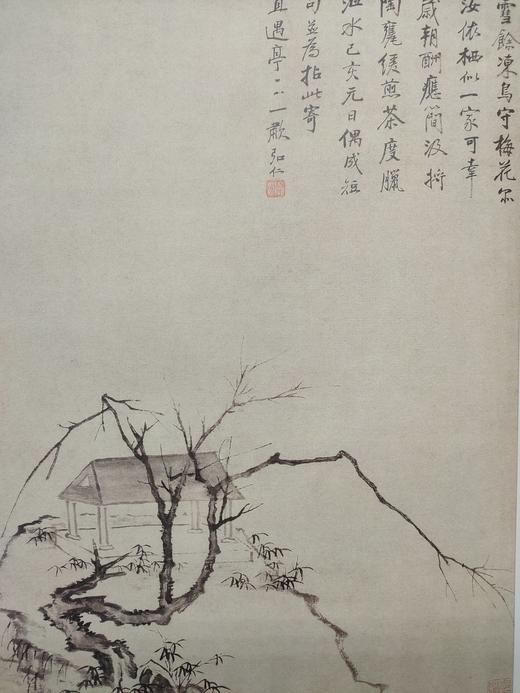 雪餘凍鳥守梅花尔
汝依栖似一家可幸
歲朝酬應簡汲將
陶甕緩煎茶度臘
水己亥元日偶成短
句並為拈此寄
遇亭一弘仁